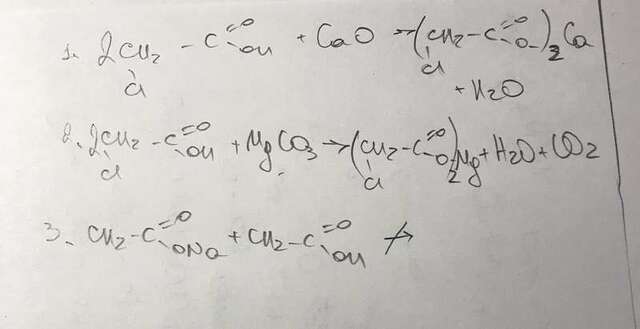 1. 2CH2 - C =O OH + CaO → (CH2 - C =O O-)2 Ca
Cl Cl
+ H2O
2. 2CH2 - C =O OH + MgCO3 → (CH2 - C =O O)2 Mg + H2O + CO2
Cl Cl
3. CH2 - C =O ONa + CH2 - C =O OH ↛